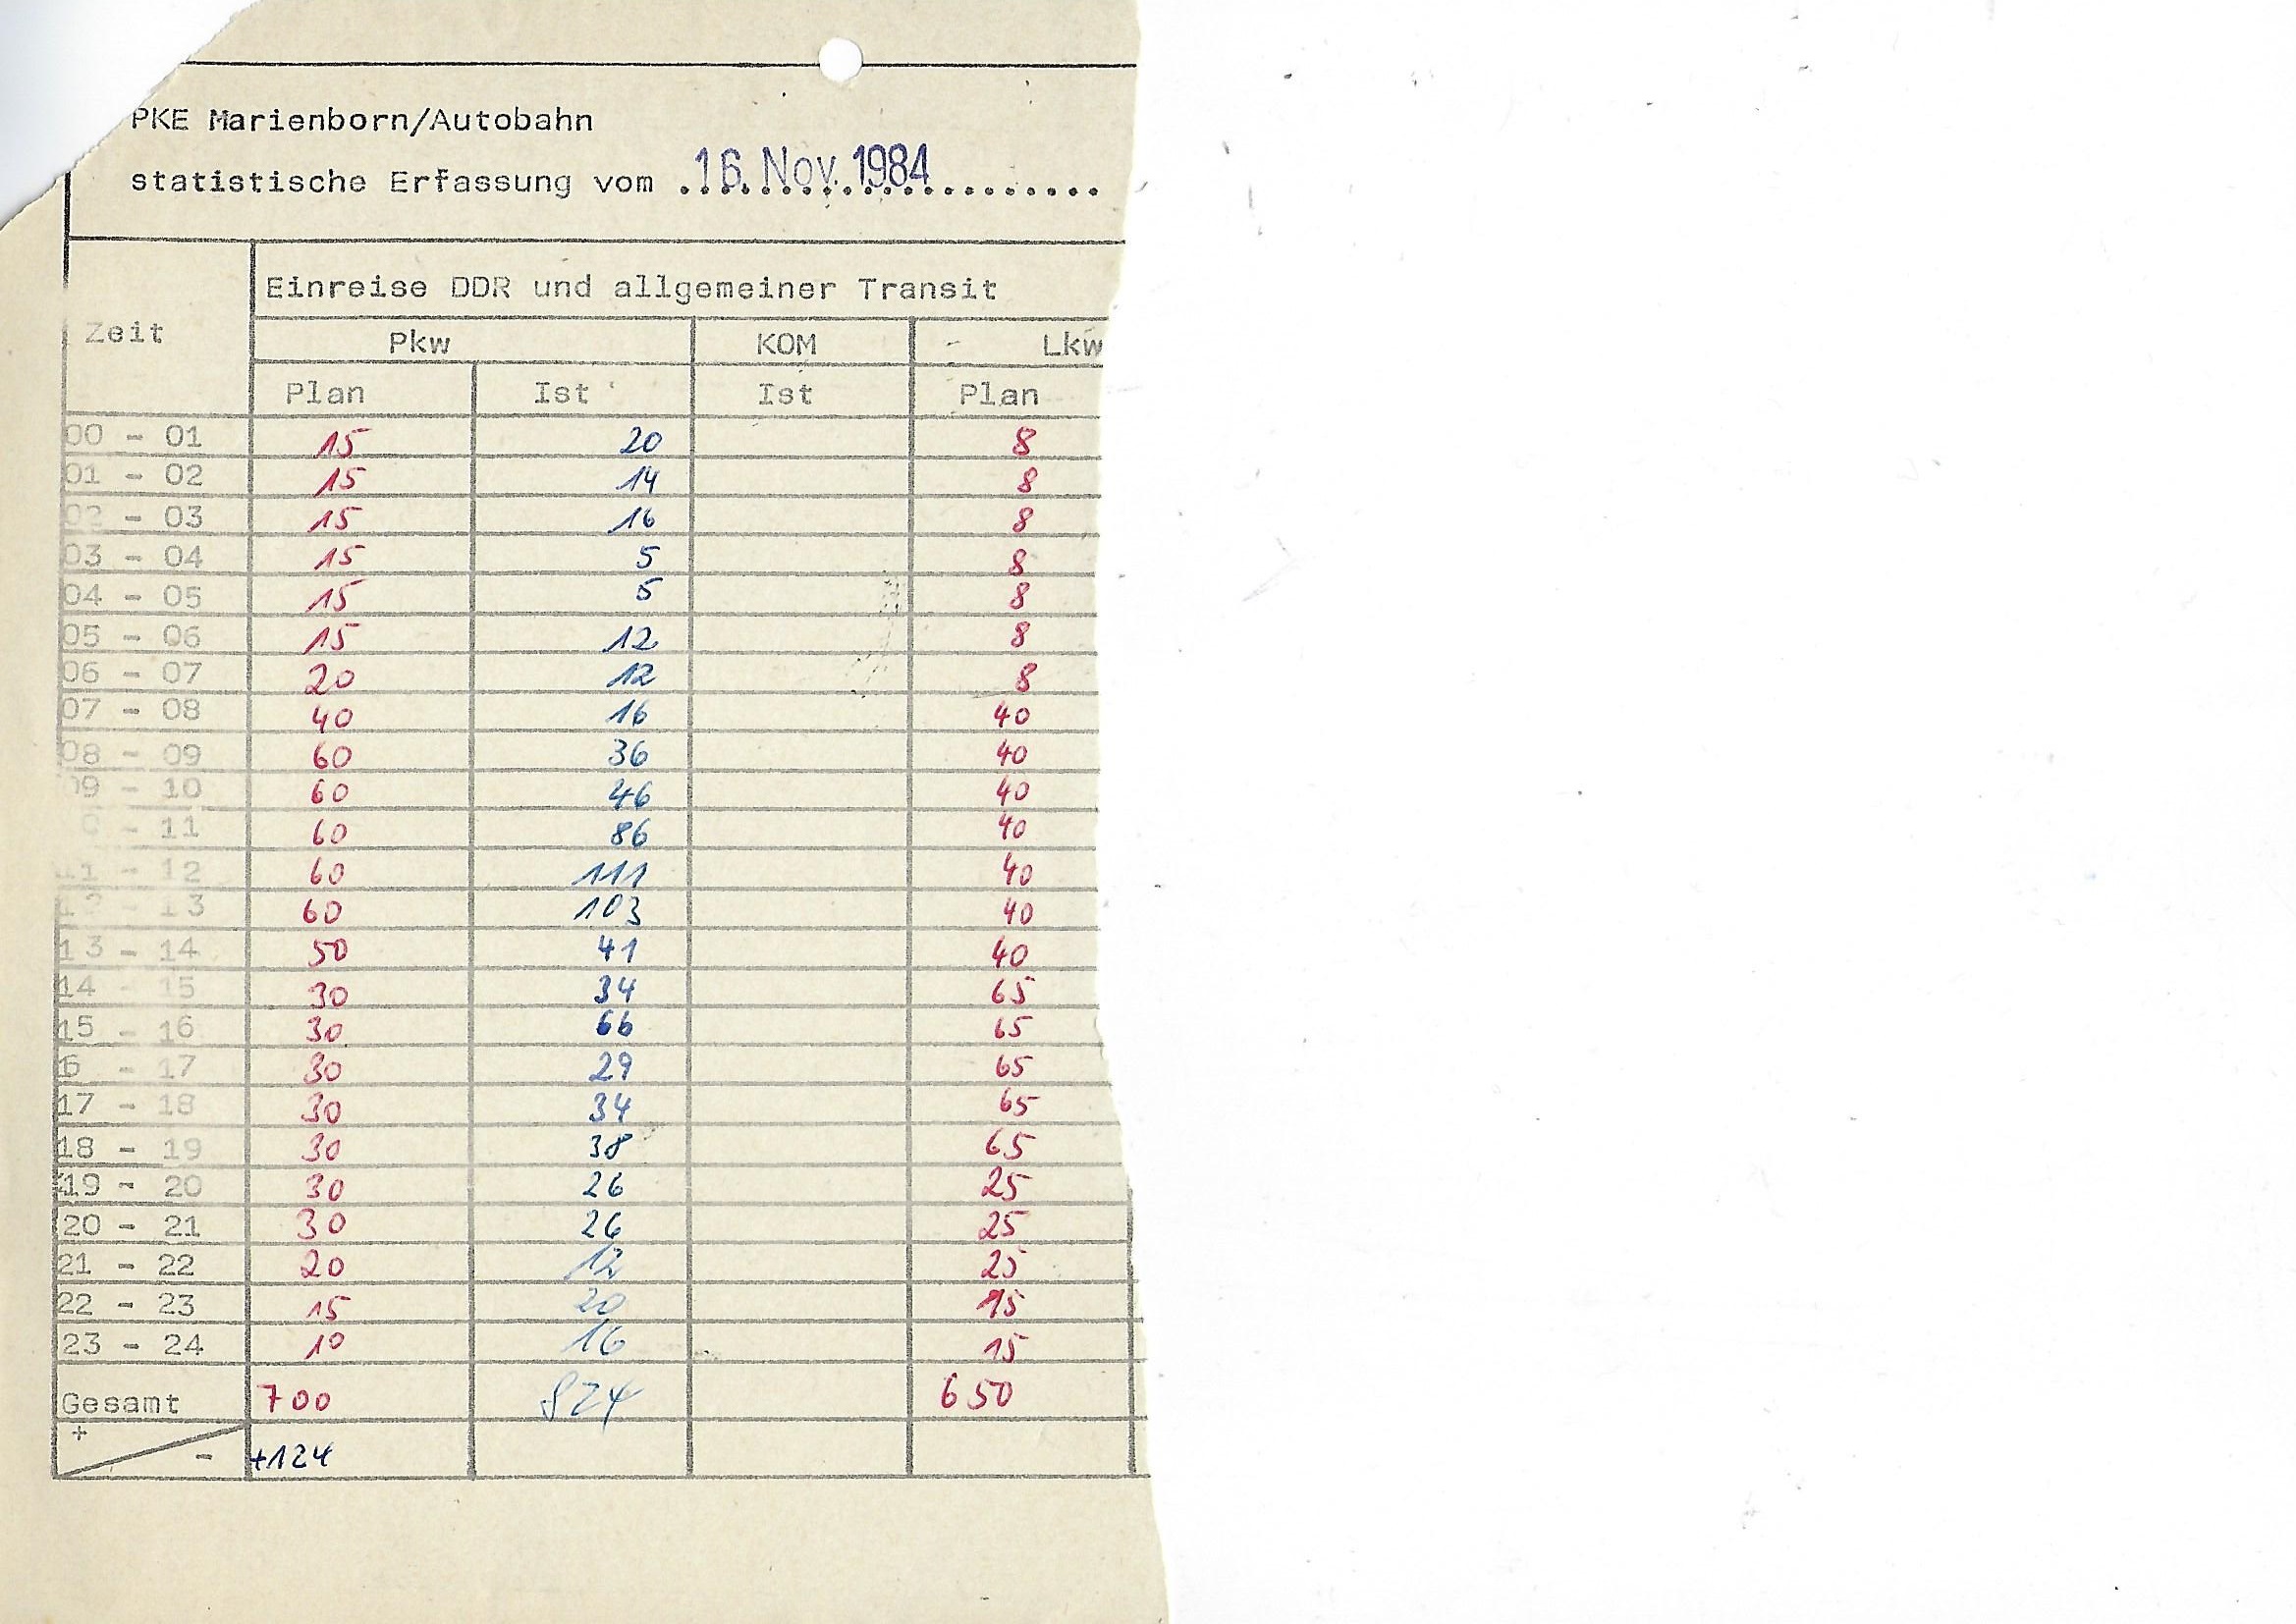 PKE Marienborn/Autobahn
statistische Erfassung vom 16. Nov. 1984
Einreise DDR und allgemeiner Transit
Zeit
Pkw KOM Lkw
Plan Ist Ist Plan
00 - 01 15 20 8
01 - 02 15 14 8
02 - 03 15 16 8
03 - 04 15 5 8
04 - 05 15 5 8
05 - 06 15 12 8
06 - 07 20 12 8
07 - 08 40 16 40
08 - 09 60 36 40
09 - 10 60 46 40
0 - 11 60 86 40
11 - 12 60 111 40
12 - 13 60 103 40
13 - 14 50 41 40
14 - 15 30 34 65
15 - 16 30 66 65
6 - 17 30 29 65
17 - 18 30 34 65
18 - 19 30 38 65
19 - 20 30 26 25
20 - 21 30 26 25
21 - 22 20 12 25
22 - 23 15 20 15
23 - 24 10 16 15
Gesamt 700 824 650
+
- +124